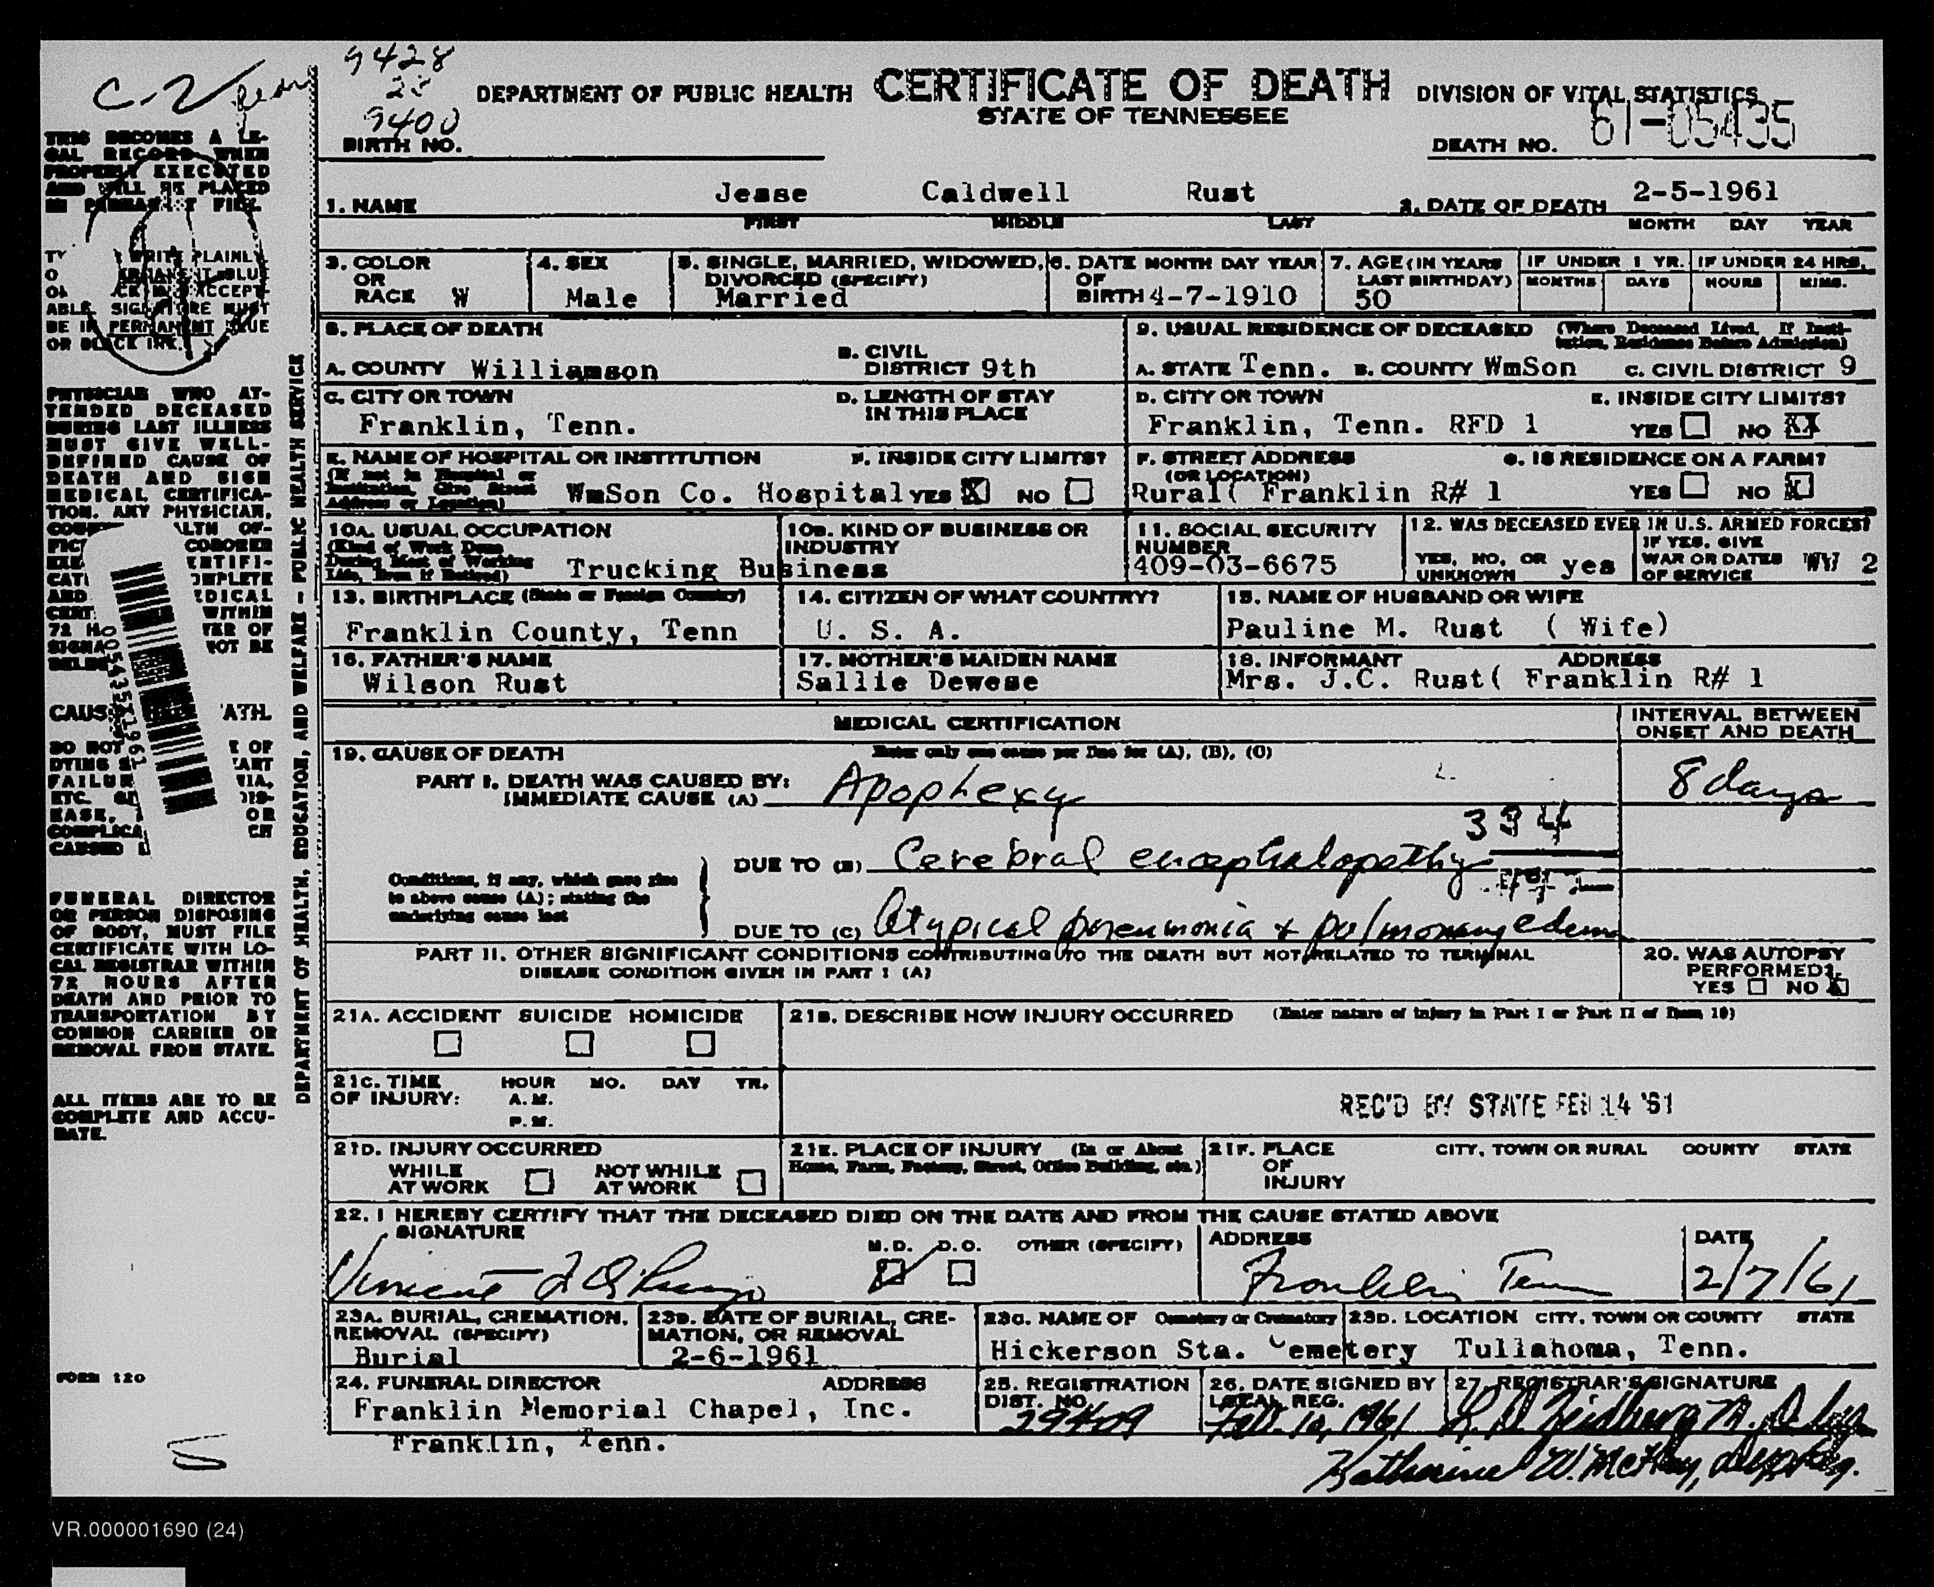 9428
25
9400
DEPARTMENT OF PUBLIC HEALTH CERTIFICATE OF DEATH DIVISION OF VITAL STATISTICS
STATE OF TENNESSEE
BIRTH NO.
DEATH NO. 61-05435
THIS BECOMES A LE-
GAL RECORD WHEN
PROPERLY EXECUTED
AND WILL BE PLACED
IN PERMANENT FILE.
PLAINLY
BE IN PERMANENT BLUE
OR BLACK INK.
PHYSICIAN WHO AT-
TENDED DECEASED
DURING LAST ILLNESS
MUST GIVE WELL-
DEFINED CAUSE OF
DEATH AND SIGN
MEDICAL CERTIFICA-
TION. ANY PHYSICIAN,
FUNERAL DIRECTOR
OR PERSON DISPOSING
OF BODY, MUST FILE
CERTIFICATE WITH LO-
CAL REGISTRAR WITHIN
72 HOURS AFTER
DEATH AND PRIOR TO
TRANSPORTATION BY
COMMON CARRIER OR
REMOVAL FROM STATE.
ALL ITEMS ARE TO BE
COMPLETE AND ACCU-
RATE.
FORM 120
DEPARTMENT OF HEALTH, EDUCATION, AND WELFARE - PUBLIC HEALTH SERVICE
1. NAME Jesse Caldwell Rust 2. DATE OF DEATH 2-5-1961
FIRST MIDDLE LAST MONTH DAY YEAR
3. COLOR OR RACE W
4. SEX Male
5. SINGLE, MARRIED, WIDOWED, DIVORCED (SPECIFY) Married
6. DATE OF BIRTH MONTH DAY YEAR 4-7-1910
7. AGE (IN YEARS LAST BIRTHDAY) 50
IF UNDER 1 YR. MONTHS DAYS
IF UNDER 24 HRS. HOURS MINS.
8. PLACE OF DEATH
A. COUNTY Williamson B. CIVIL DISTRICT 9th
C. CITY OR TOWN Franklin, Tenn.
D. LENGTH OF STAY IN THIS PLACE
E. NAME OF HOSPITAL OR INSTITUTION (If not in Hospital or Institution, Give Street Address or Location) WmSon Co. Hospital
F. INSIDE CITY LIMITS? YES X NO
9. USUAL RESIDENCE OF DECEASED (Where Deceased Lived. If Insti-
tution, Residence Before Admission)
A. STATE Tenn. B. COUNTY WmSon C. CIVIL DISTRICT 9
D. CITY OR TOWN Franklin, Tenn. RFD 1
E. INSIDE CITY LIMITS? YES NO XX
F. STREET ADDRESS (OR LOCATION) Rural( Franklin R# 1
G. IS RESIDENCE ON A FARM? YES NO X
10A. USUAL OCCUPATION (Kind of Work Done During Most of Working Life, Even If Retired) Trucking Business
10B. KIND OF BUSINESS OR INDUSTRY
11. SOCIAL SECURITY NUMBER 409-03-6675
12. WAS DECEASED EVER IN U.S. ARMED FORCES?
YES, NO, OR UNKNOWN yes
IF YES, GIVE WAR OR DATES OF SERVICE WW 2
13. BIRTHPLACE (State or Foreign Country) Franklin County, Tenn
14. CITIZEN OF WHAT COUNTRY? U. S. A.
15. NAME OF HUSBAND OR WIFE Pauline M. Rust ( Wife)
16. FATHER'S NAME Wilson Rust
17. MOTHER'S MAIDEN NAME Sallie Dewese
18. INFORMANT ADDRESS Mrs. J.C. Rust( Franklin R# 1
MEDICAL CERTIFICATION
INTERVAL BETWEEN ONSET AND DEATH
19. CAUSE OF DEATH Enter only one cause per line for (A), (B), (C)
PART I. DEATH WAS CAUSED BY:
IMMEDIATE CAUSE (A) Apoplexy 8 days
334
DUE TO (B) Cerebral encephalopathy
Conditions, if any, which gave rise
to above cause (A); stating the
underlying cause last
DUE TO (C) Atypical pneumonia + pulmonary edema
PART II. OTHER SIGNIFICANT CONDITIONS CONTRIBUTING TO THE DEATH BUT NOT RELATED TO TERMINAL
DISEASE CONDITION GIVEN IN PART I (A)
20. WAS AUTOPSY PERFORMED? YES NO X
21A. ACCIDENT SUICIDE HOMICIDE
21B. DESCRIBE HOW INJURY OCCURRED (Enter nature of injury in Part I or Part II of Item 19)
21C. TIME OF INJURY: HOUR MO. DAY YR.
A.M.
P.M.
REC'D BY STATE FEB 14 '61
21D. INJURY OCCURRED
WHILE AT WORK NOT WHILE AT WORK
21E. PLACE OF INJURY (In or About Home, Farm, Factory, Street, Office Building, etc.)
21F. PLACE OF INJURY CITY, TOWN OR RURAL COUNTY STATE
22. I HEREBY CERTIFY THAT THE DECEASED DIED ON THE DATE AND FROM THE CAUSE STATED ABOVE
SIGNATURE M.D. D.O. OTHER (SPECIFY)
Vincent
ADDRESS Franklin Tenn
DATE 2/7/61
23A. BURIAL, CREMATION, REMOVAL (SPECIFY) Burial
23B. DATE OF BURIAL, CRE-
MATION, OR REMOVAL 2-6-1961
23C. NAME OF Cemetery or Crematory Hickerson Sta. Cemetery
23D. LOCATION CITY, TOWN OR COUNTY STATE Tullahoma, Tenn.
24. FUNERAL DIRECTOR ADDRESS
Franklin Memorial Chapel, Inc.
Franklin, Tenn.
25. REGISTRATION DIST. NO. 29409
26. DATE SIGNED BY LOCAL REG. Feb. 10, 1961
27. REGISTRAR'S SIGNATURE
Katherine W. McKay, Dep. Reg.
VR.000001690 (24)